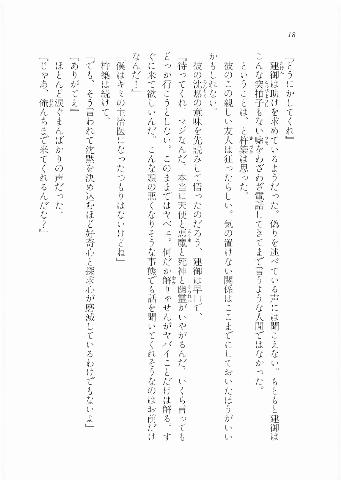 18
『どうにかしてくれ』
　建御は助けを求めているようだった。偽りを述べている声には聞こえない。もともと建御は
こんな突拍子もない嘘をわざわざ電話してきてまで言うような人間ではなかった。
　ということは、と杵築は思った。
　彼のこの親しい友人は狂ったらしい。気の置けない関係はここまでにしておいたほうがいい
かもしれない。
　彼の沈黙の意味を先読みして悟ったのだろう、建御は早口で、
『待ってくれ、マジなんだ。本当に天使と悪魔と死神と幽霊がいやがるんだ。いくら言っても
どっか行こうとしない。このままではヤベェ。何だか解りゃせんがヤバイことだけは解る。す
ぐに来て欲しいんだ。こんな頭の悪くなりそうな事態でも話を聞いてくれそうなのはお前だけ
なんだ！』
「僕はキミの主治医になったつもりはないけどね」
　杵築は続けて、
「でも、そう言われて沈黙を決め込むほど好奇心と探求心が磨滅しているわけでもないよ」
『ありがてえ』
　ほとんど涙ぐまんばかりの声だった。
『じゃあ、俺んちまで来てくれるんだな？』